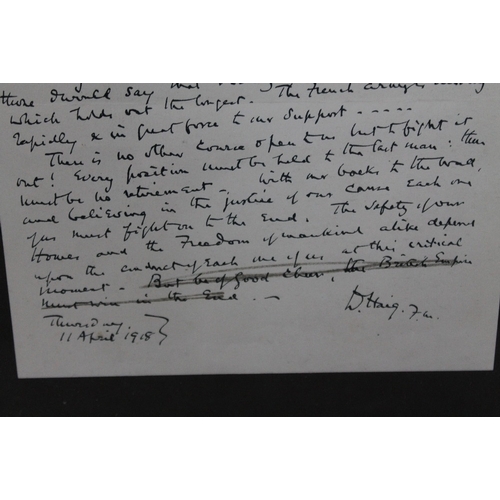 those I would say that
which holds out the longest. The French Army is moving
rapidly & in great force to our support -----
There is no other course open to us but to fight it
out! Every position must be held to the last man: there
must be no retirement. With our backs to the wall,
and believing in the justice of our cause each one
of us must fight on to the End. The safety of our
Homes and the Freedom of mankind alike depend
upon the conduct of each one of us at this critical
moment. But be of good cheer, the British Empire
must win in the End. -
D. Haig. F.M.
Thursday
11 April 1918